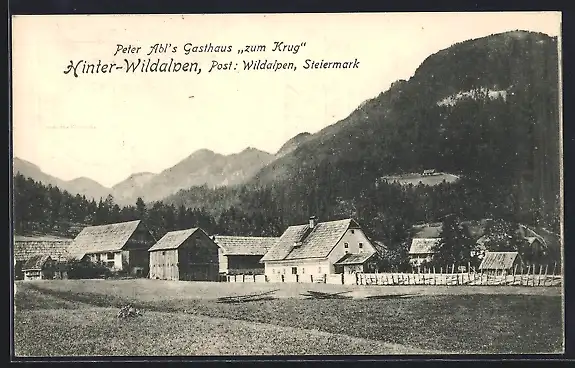 Peter Abl's Gasthaus „zum Krug"
Hinter-Wildalpen, Post: Wildalpen, Steiermark